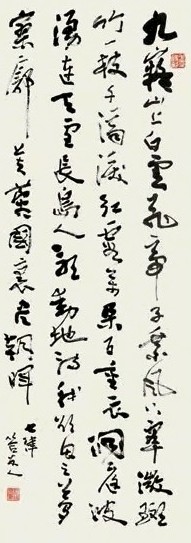 九嶷山上白雲飛帝子乘風下翠微斑
竹一枝千滴淚紅霞萬朵百重衣洞庭波
涌連天雪長島人歌動地詩我欲因之夢
寥廓芙蓉國裏盡朝暉
七律
答友人